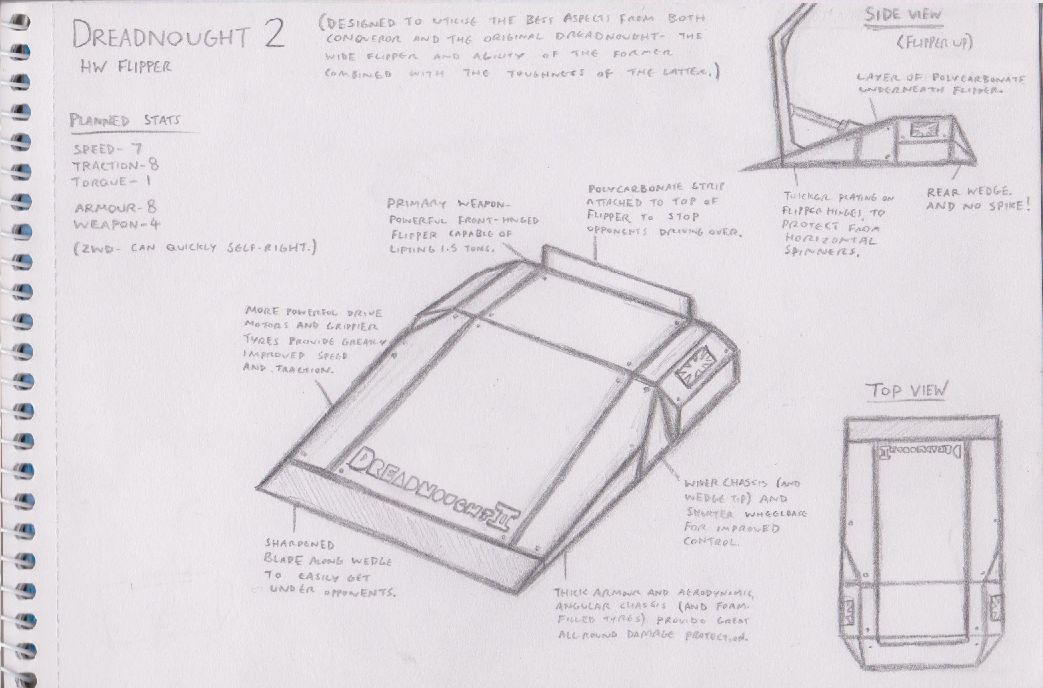 DREADNOUGHT 2
HW FLIPPER
(DESIGNED TO UTILISE THE BEST ASPECTS FROM BOTH
CONQUEROR AND THE ORIGINAL DREADNOUGHT- THE
WIDE FLIPPER AND AGILITY OF THE FORMER
COMBINED WITH THE TOUGHNESS OF THE LATTER.)
PLANNED STATS
SPEED- 7
TRACTION- 8
TORQUE- 1
ARMOUR- 8
WEAPON- 4
(2WD- CAN QUICKLY SELF-RIGHT.)
SIDE VIEW
(FLIPPER UP)
LAYER OF POLYCARBONATE
UNDERNEATH FLIPPER.
THICKER PLATING ON
FLIPPER HINGES, TO
PROTECT FROM
HORIZONTAL
SPINNERS.
REAR WEDGE.
AND NO SPIKE!
PRIMARY WEAPON-
POWERFUL FRONT-HINGED
FLIPPER CAPABLE OF
LIFTING 1.5 TONS.
POLYCARBONATE STRIP
ATTACHED TO TOP OF
FLIPPER TO STOP
OPPONENTS DRIVING OVER.
MORE POWERFUL DRIVE
MOTORS AND GRIPPIER
TYRES PROVIDE GREATLY
IMPROVED SPEED
AND TRACTION.
DREADNOUGHT II
TOP VIEW
DREADNOUGHT II
WIDER CHASSIS (AND
WEDGE TIP) AND
SHORTER WHEELBASE
FOR IMPROVED
CONTROL.
SHARPENED
BLADE ALONG WEDGE
TO EASILY GET
UNDER OPPONENTS.
THICK ARMOUR AND AERODYNAMIC,
ANGULAR CHASSIS (AND FOAM-
FILLED TYRES) PROVIDE GREAT
ALL ROUND DAMAGE PROTECTION.